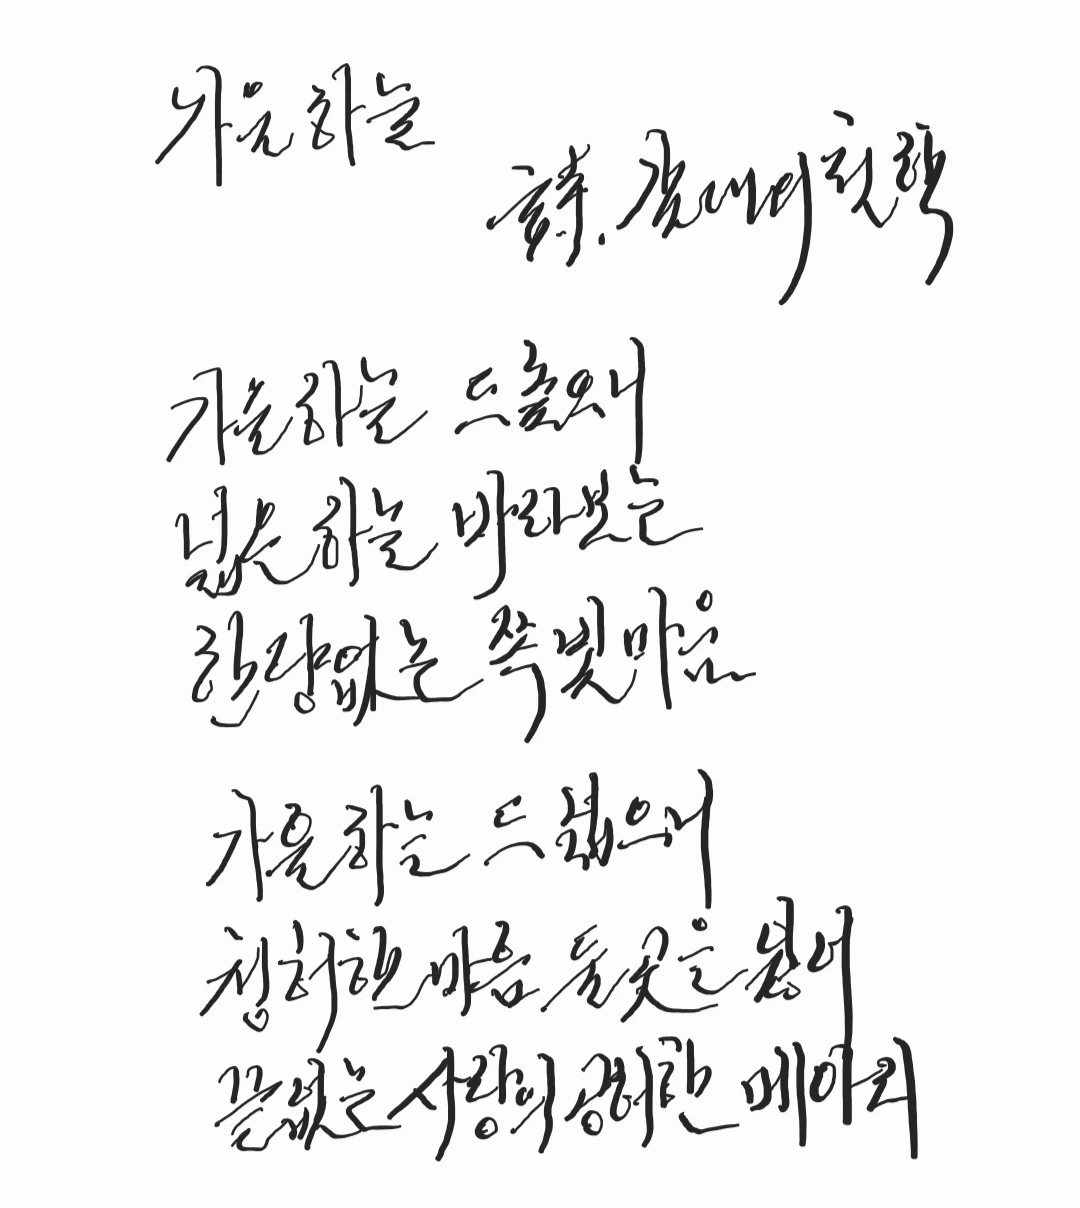 가을 하늘
詩.
가을 하늘 드높으니
넓은 하늘 바라보는
한량없는 쪽빛 마음
가을 하늘 드넓으니
청허한 마음 들꽃을
끝없는 사랑의 공허한 메아리